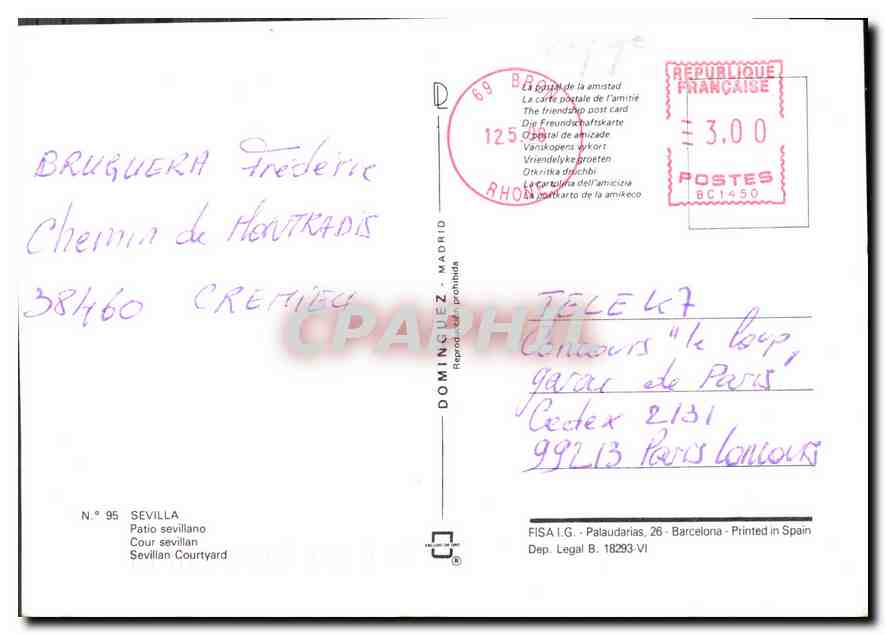 BRUGUERA Frédéric
Chemin de MONTRADIS
38460 CREMIEU
N.º 95 SEVILLA
Patio sevillano
Cour sevillan
Sevillan Courtyard
DOMINGUEZ - MADRID
Reproducción prohibida
69 BRON
12.5
RHONE
La postal de la amistad
La carte postale de l'amitié
The friendship post card
Die Freundschaftskarte
O postal de amizade
Vänskopens vykort
Vriendelyke groeten
Otkritka druchbi
La cartolina dell'amicizia
La postkarto de la amikeco
REPUBLIQUE
FRANÇAISE
3,00
POSTES
BC1450
TELE K7
Concours "le loup
garou de Paris"
Cedex 2131
99213 Paris Concours
CPAPHIL
FISA I.G. - Palaudarias, 26 - Barcelona - Printed in Spain
Dep. Legal B. 18293-VI